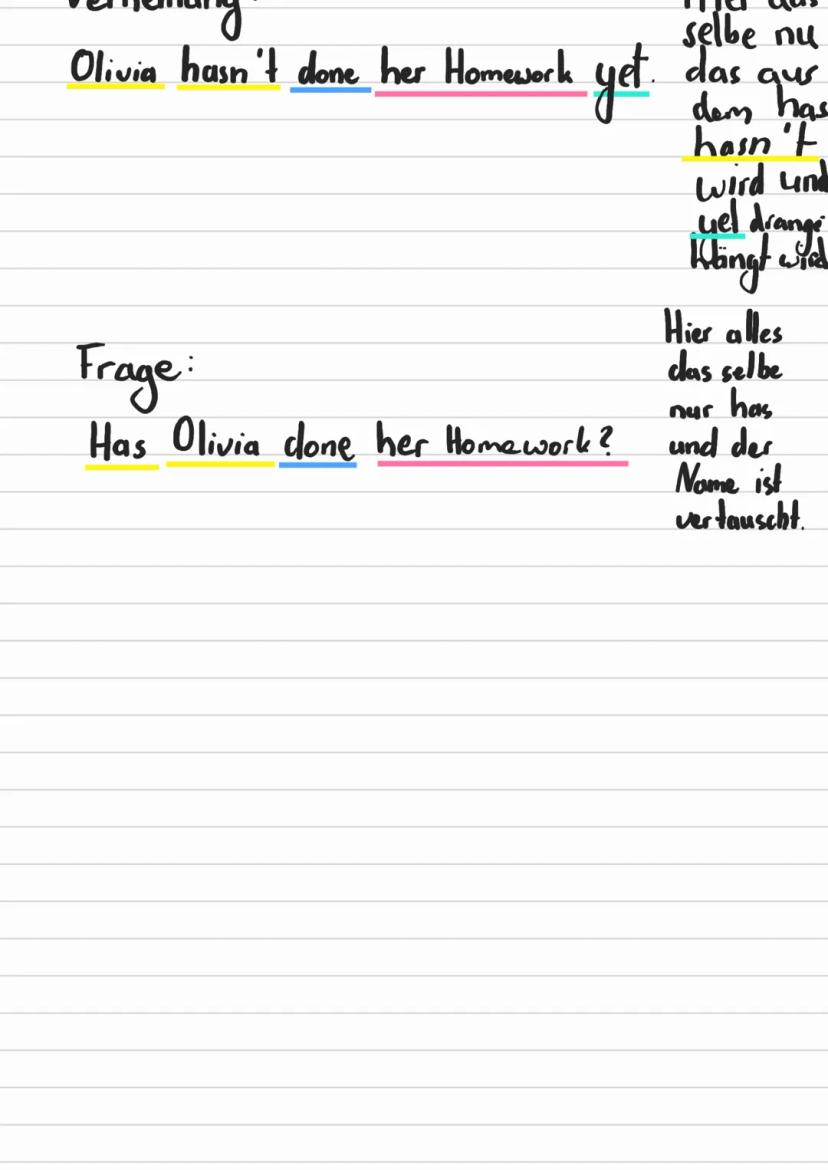 Verneinung:
Olivia hasn't done her Homework yet.
Hier das
selbe nu
das aus
dem has
hasn't
wird und
yet drange
hängt wird
Frage:
Has Olivia done her Homework?
Hier alles
das selbe
nur has
und der
Name ist
vertauscht.